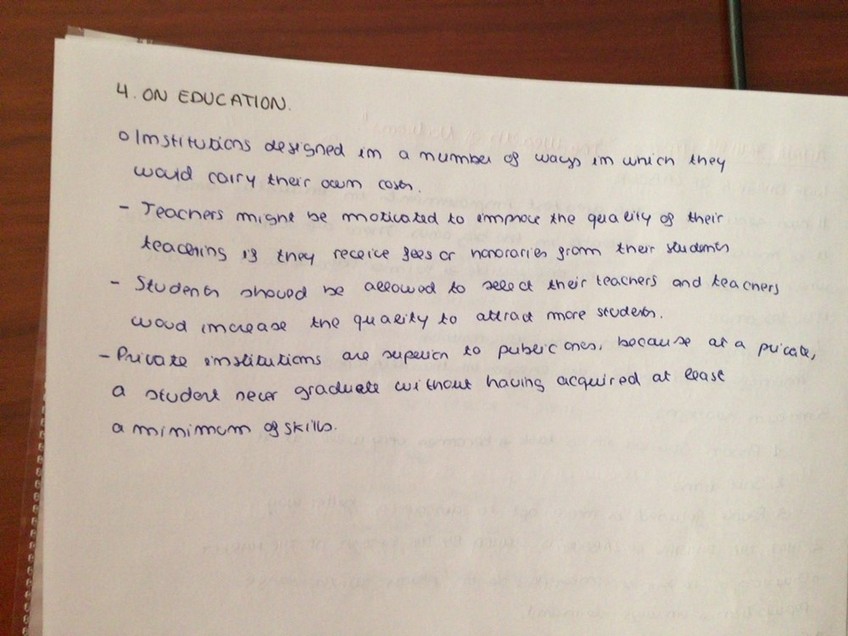 4. ON EDUCATION.
o Institutions designed in a number of ways in which they
would carry their own costs.
- Teachers might be motivated to improve the quality of their
teaching if they receive fees or honoraries from their students
- Students should be allowed to select their teachers and teachers
woud increase the quality to attract more students.
- Private institutions are superior to public ones, because at a private,
a student never graduate without having acquired at lease
a minimum of skills.